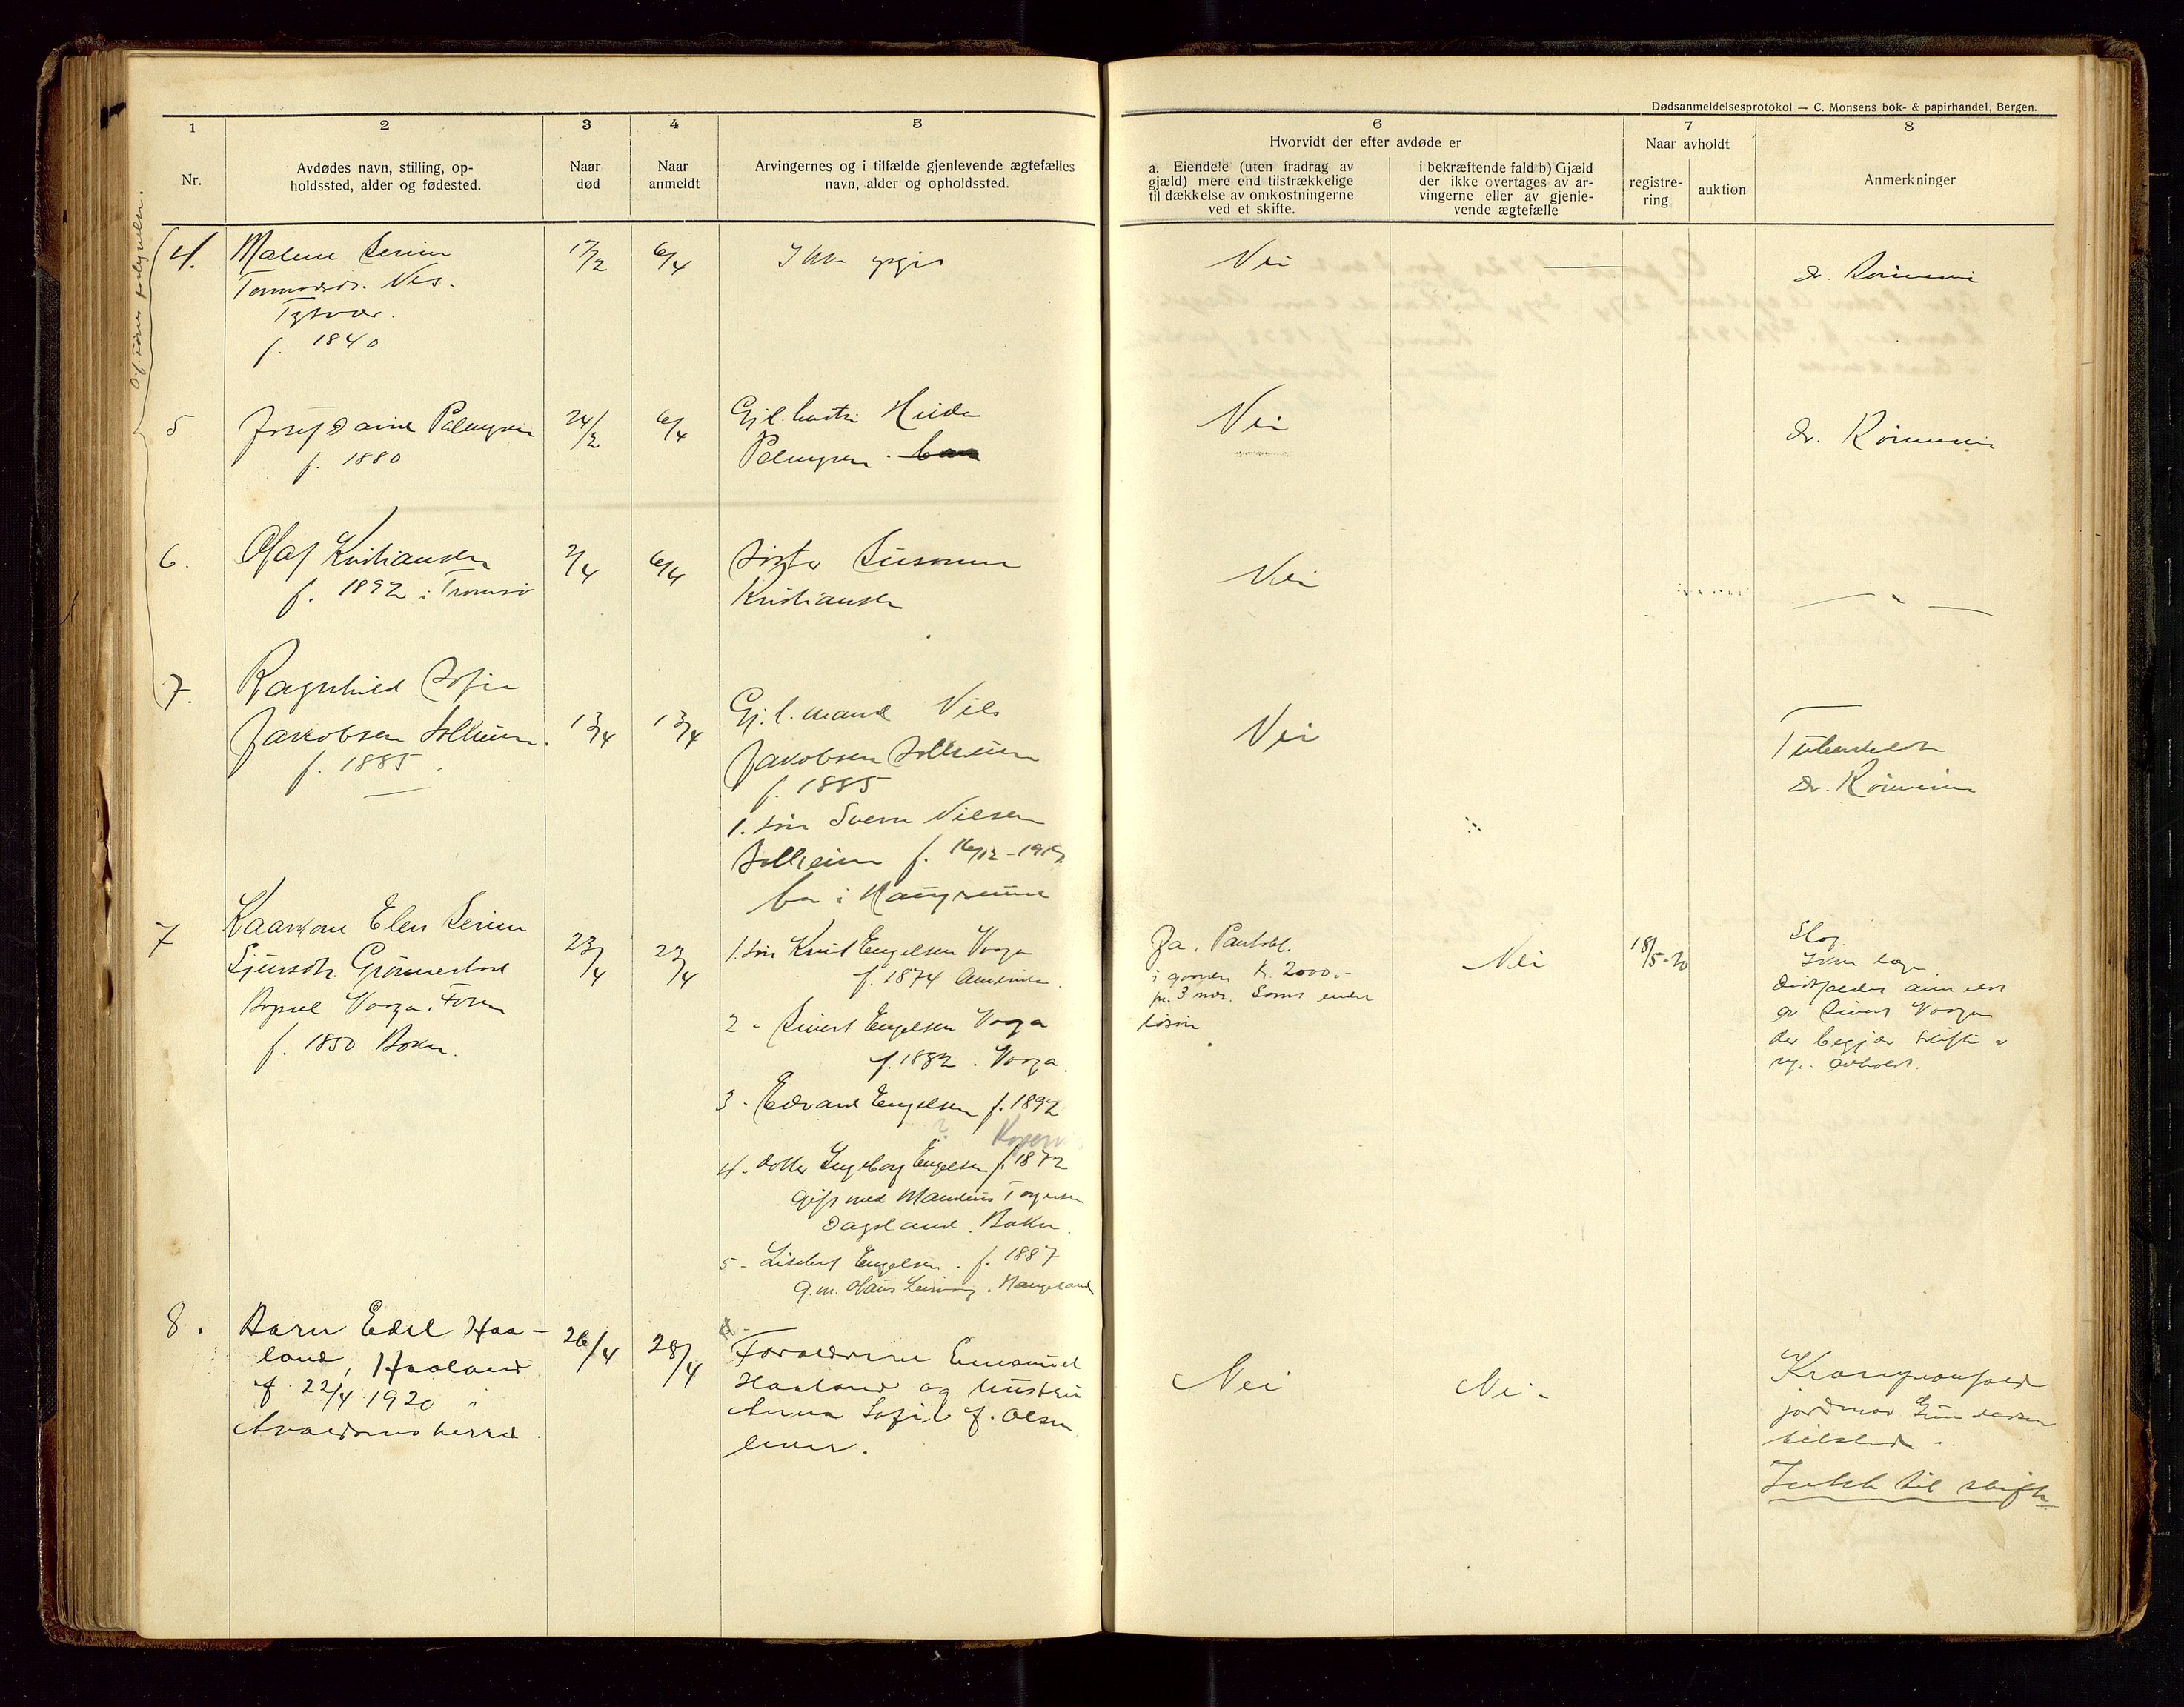 Dødsanmeldelsesprotokol — C. Monsens bok- & papirhandel, Bergen.
1
Nr.
2
Avdødes navn, stilling, op-
holdssted, alder og fødested.
3
Naar
død
4
Naar
anmeldt
5
Arvingernes og i tilfælde gjenlevende ægtefælles
navn, alder og opholdssted.
6
Hvorvidt der efter avdøde er
a. Eiendele (uten fradrag av
gjæld) mere end tilstrækkelige
til dækkelse av omkostningerne
ved et skifte.
i bekræftende fald b) Gjæld
der ikke overtages av ar-
vingerne eller av gjenle-
vende ægtefælle
7
Naar avholdt
registre-
ring
auktion
8
Anmerkninger
4.
Malene Serine
Tormodsdr. Nes.
Tysvær.
f. 1840
17/2
6/4
Ikke opgit
Nei
—
dr.
5
Josef David Palmgren
f. 1880
24/2
6/4
Gjl. hustru Hulda
Palmgren.
Nei
dr.
6.
Olaf Kristiansen
f. 1892 i Tromsø
2/4
6/4
Søster Susanne
Kristiansen
Nei
— " —
7.
Ragnhild Sofie
Jakobsen Solheim.
f. 1885.
13/4
13/4
Gj. l. mand Nils
Jakobsen Solheim
f. 1885
1. søn Svern Nilsen
Solheim f. 16/12-191
bor i Haugesund
Nei
Tuberkulose
dr.
7
Kaarkone Elen Serine
Sjursdtr. Grønnestad
Bopæl Vorga.
f. 1850 Bokn.
23/4
23/4
1. søn Knut Engelsen Vorga
f. 1874 Amerika.
2 - Sivert Engelsen Vorga
f. 1882. Vorga.
3 - Edvard Engelsen f. 1892
?
4 - dotter Ingeborg Engelsen f. 1872
gift med Maudeus Torgersen
Dagsland. Bokn.
5 - Lisebet Engelsen. f. 1887
g.m. Olaus Leirvåg. Haugeland
Ja. Pantobl.
i gaarden kr. 2000.-
pr. 3 mdr. Samt endel
løsøre
Nei
18/5-20
Slag
Ikke læge.
Dødsfaldet anmeldt
av Sivert Vorga
der begjær skifte
avholdt.
8.
Barn Edel Haa-
land, Haaland
f. 22/4 1920 i
Avaldsnes herred.
26/4
28/4
Forældrene Emanuel
Haaland og hustru
Anna Sofie f. Olsen,
lever.
Nei
Nei -
Krampeanfald
jordmor Gundersen
tilstede.
Intet til skifte